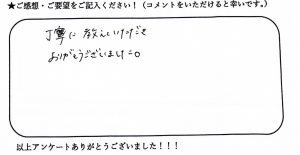 ★ご感想・ご要望をご記入ください！（コメントをいただけると幸いです。）
丁寧に教えいただき
ありがとうございました。
以上アンケートありがとうございました！！！